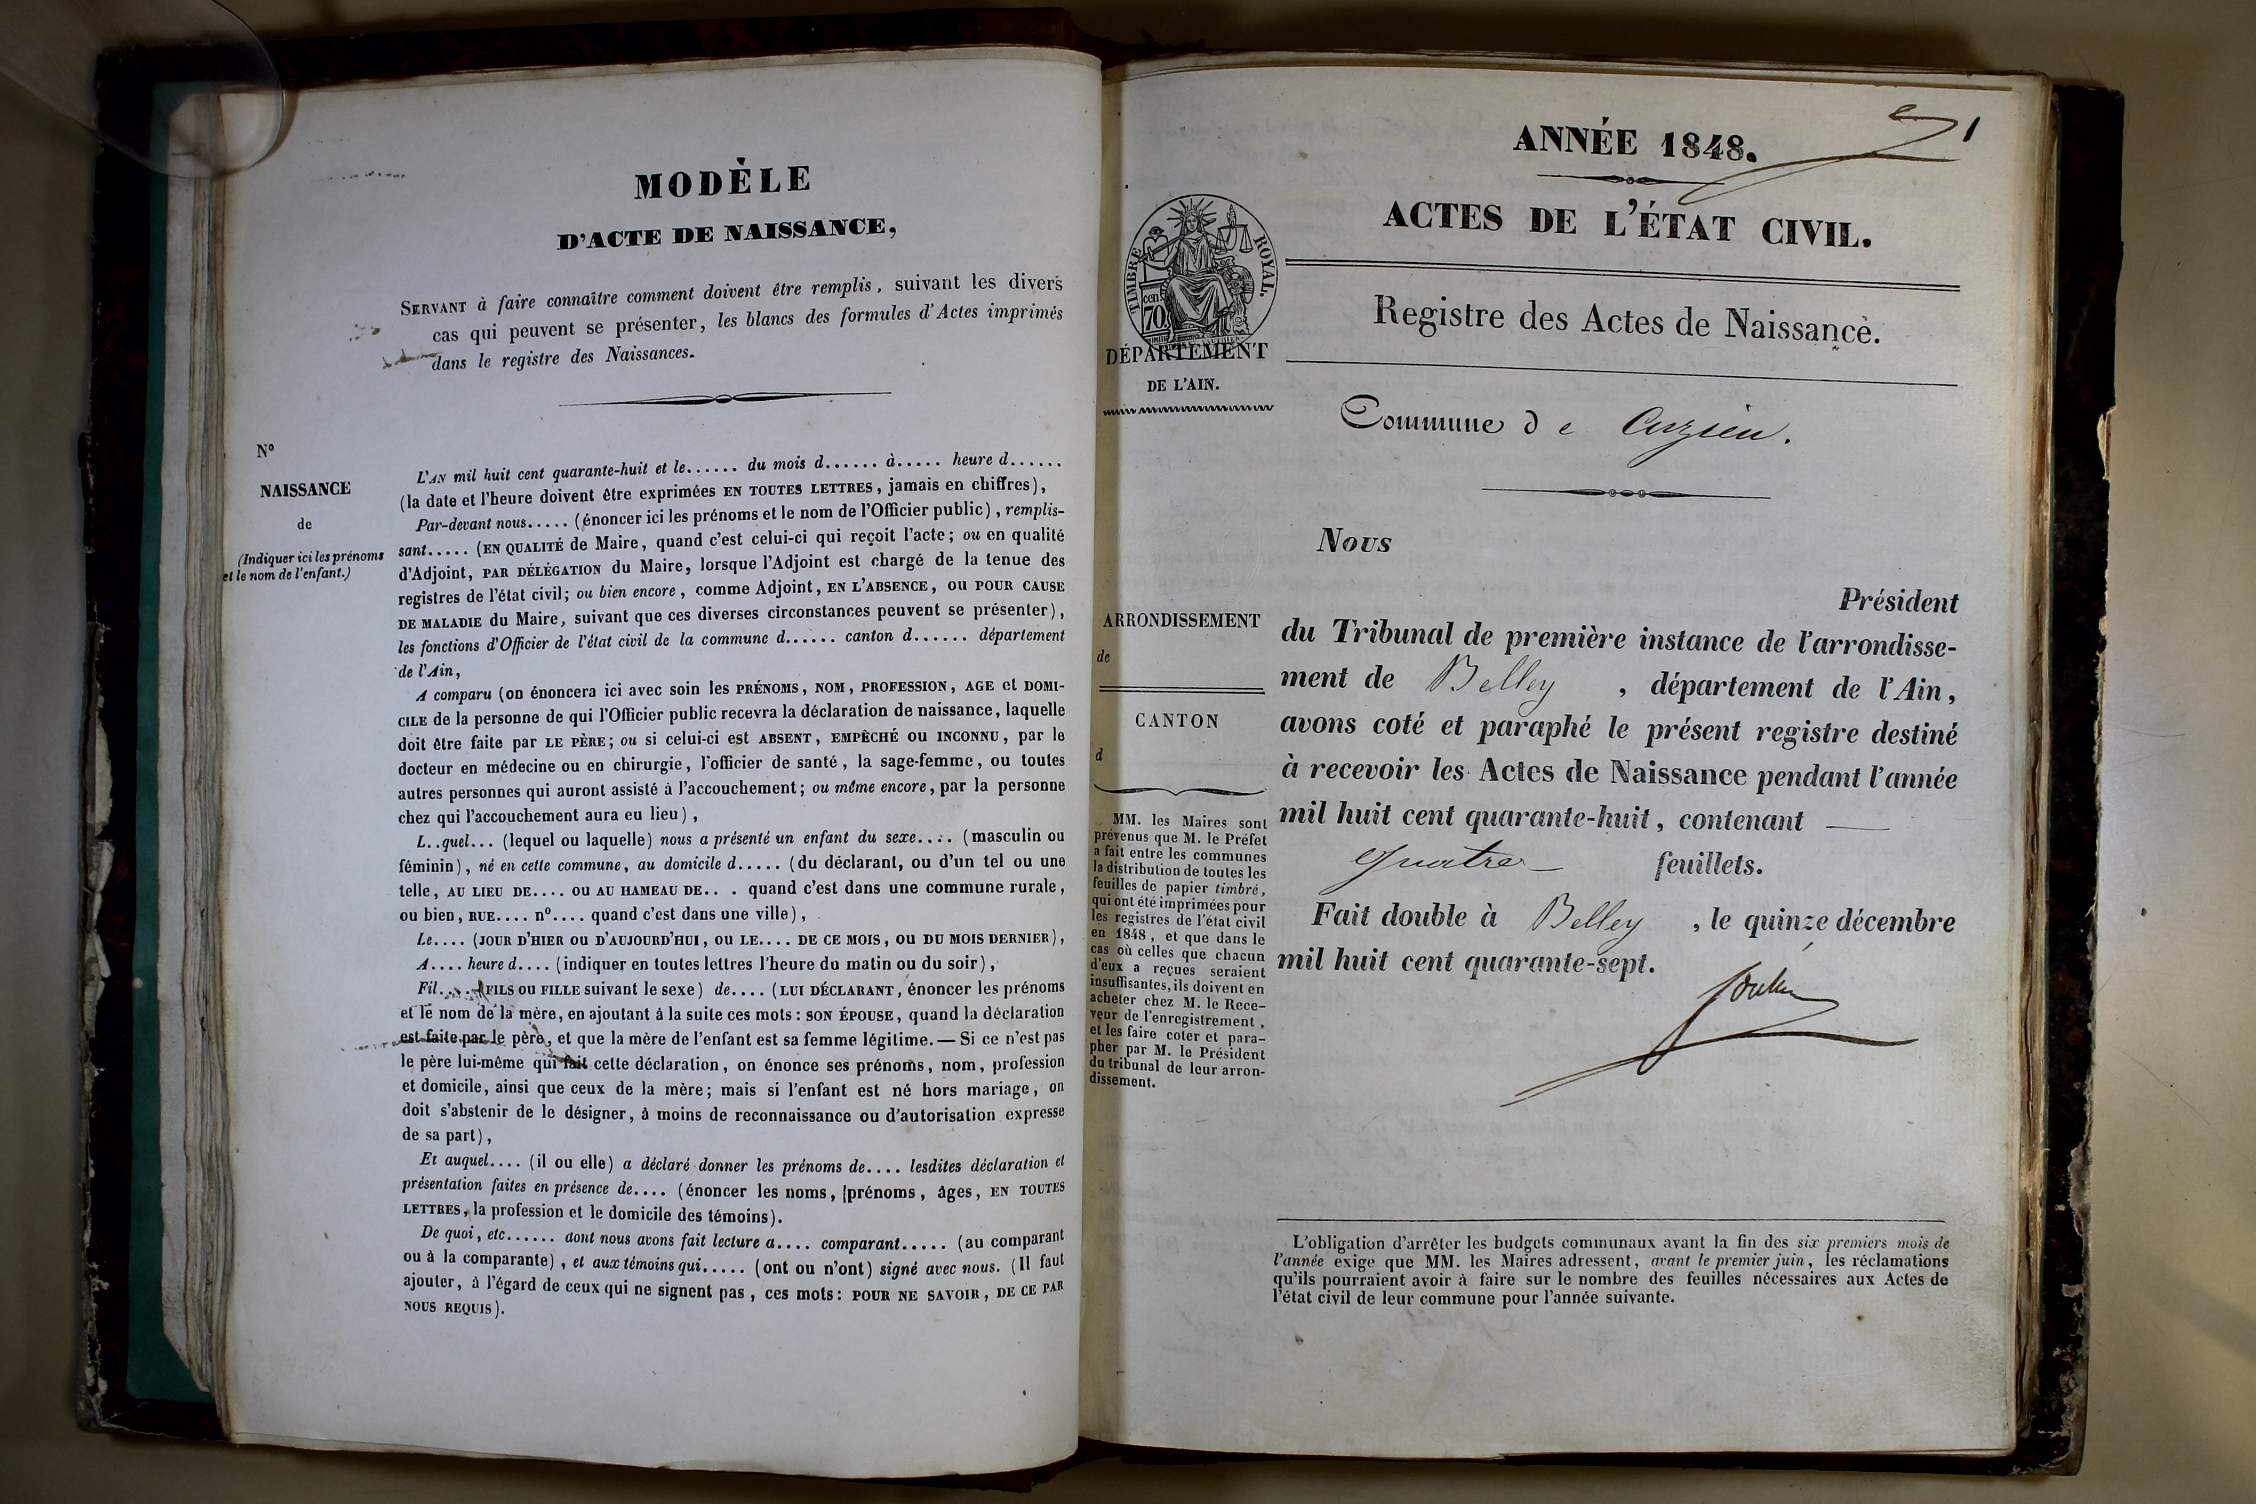 MODÈLE
D'ACTE DE NAISSANCE,
SERVANT à faire connaître comment doivent être remplis, suivant les divers
cas qui peuvent se présenter, les blancs des formules d'Actes imprimés
dans le registre des Naissances.
N°
NAISSANCE
de
(Indiquer ici les prénoms
et le nom de l'enfant.)
L'AN mil huit cent quarante-huit et le...... du mois d...... à..... heure d......
(la date et l'heure doivent être exprimées EN TOUTES LETTRES, jamais en chiffres),
Par-devant nous..... (énoncer ici les prénoms et le nom de l'Officier public), remplis-
sant..... (EN QUALITÉ de Maire, quand c'est celui-ci qui reçoit l'acte; ou en qualité
d'Adjoint, PAR DÉLÉGATION du Maire, lorsque l'Adjoint est chargé de la tenue des
registres de l'état civil; ou bien encore, comme Adjoint, EN L'ABSENCE, OU POUR CAUSE
DE MALADIE du Maire, suivant que ces diverses circonstances peuvent se présenter),
les fonctions d'Officier de l'état civil de la commune d...... canton d...... département
de l'Ain,
A comparu (on énoncera ici avec soin les PRÉNOMS, NOM, PROFESSION, AGE et DOMI-
CILE de la personne de qui l'Officier public recevra la déclaration de naissance, laquelle
doit être faite par LE PÈRE; ou si celui-ci est ABSENT, EMPÊCHÉ OU INCONNU, par le
docteur en médecine ou en chirurgie, l'officier de santé, la sage-femme, ou toutes
autres personnes qui auront assisté à l'accouchement; ou même encore, par la personne
chez qui l'accouchement aura eu lieu),
L..quel... (lequel ou laquelle) nous a présenté un enfant du sexe.... (masculin ou
féminin), né en cette commune, au domicile d..... (du déclarant, ou d'un tel ou une
telle, AU LIEU DE.... OU AU HAMEAU DE.. . quand c'est dans une commune rurale,
ou bien, RUE.... n°.... quand c'est dans une ville),
Le.... (JOUR D'HIER OU D'AUJOURD'HUI, OU LE.... DE CE MOIS, OU DU MOIS DERNIER),
A.... heure d.... (indiquer en toutes lettres l'heure du matin ou du soir),
Fil.... (FILS OU FILLE suivant le sexe) de.... (LUI DÉCLARANT, énoncer les prénoms
et le nom de la mère, en ajoutant à la suite ces mots: SON ÉPOUSE, quand la déclaration
est faite par le père, et que la mère de l'enfant est sa femme légitime. — Si ce n'est pas
le père lui-même qui fait cette déclaration, on énonce ses prénoms, nom, profession
et domicile, ainsi que ceux de la mère; mais si l'enfant est né hors mariage, on
doit s'abstenir de le désigner, à moins de reconnaissance ou d'autorisation expresse
de sa part),
Et auquel.... (il ou elle) a déclaré donner les prénoms de.... lesdites déclaration et
présentation faites en présence de.... (énoncer les noms, prénoms, âges, EN TOUTES
LETTRES, la profession et le domicile des témoins).
De quoi, etc...... dont nous avons fait lecture a.... comparant..... (au comparant
ou à la comparante), et aux témoins qui..... (ont ou n'ont) signé avec nous. (Il faut
ajouter, à l'égard de ceux qui ne signent pas, ces mots: POUR NE SAVOIR, DE CE PAR
NOUS REQUIS).
1
ANNÉE 1848.
ACTES DE L'ÉTAT CIVIL.
TIMBRE ROYAL.
cen
70
Registre des Actes de Naissance.
DÉPARTEMENT
DE L'AIN.
Commune de Cuzieu.
ARRONDISSEMENT
de
CANTON
d
MM. les Maires sont
prévenus que M. le Préfet
a fait entre les communes
la distribution de toutes les
feuilles de papier timbré,
qui ont été imprimées pour
les registres de l'état civil
en 1848, et que dans le
cas où celles que chacun
d'eux a reçues seraient
insuffisantes, ils doivent en
acheter chez M. le Rece-
veur de l'enregistrement,
et les faire coter et para-
pher par M. le Président
du tribunal de leur arron-
dissement.
Nous
Président
du Tribunal de première instance de l'arrondisse-
ment de Belley , département de l'Ain,
avons coté et paraphé le présent registre destiné
à recevoir les Actes de Naissance pendant l'année
mil huit cent quarante-huit, contenant —
quatre feuillets.
Fait double à Belley , le quinze décembre
mil huit cent quarante-sept.
L'obligation d'arrêter les budgets communaux avant la fin des six premiers mois de
l'année exige que MM. les Maires adressent, avant le premier juin, les réclamations
qu'ils pourraient avoir à faire sur le nombre des feuilles nécessaires aux Actes de
l'état civil de leur commune pour l'année suivante.